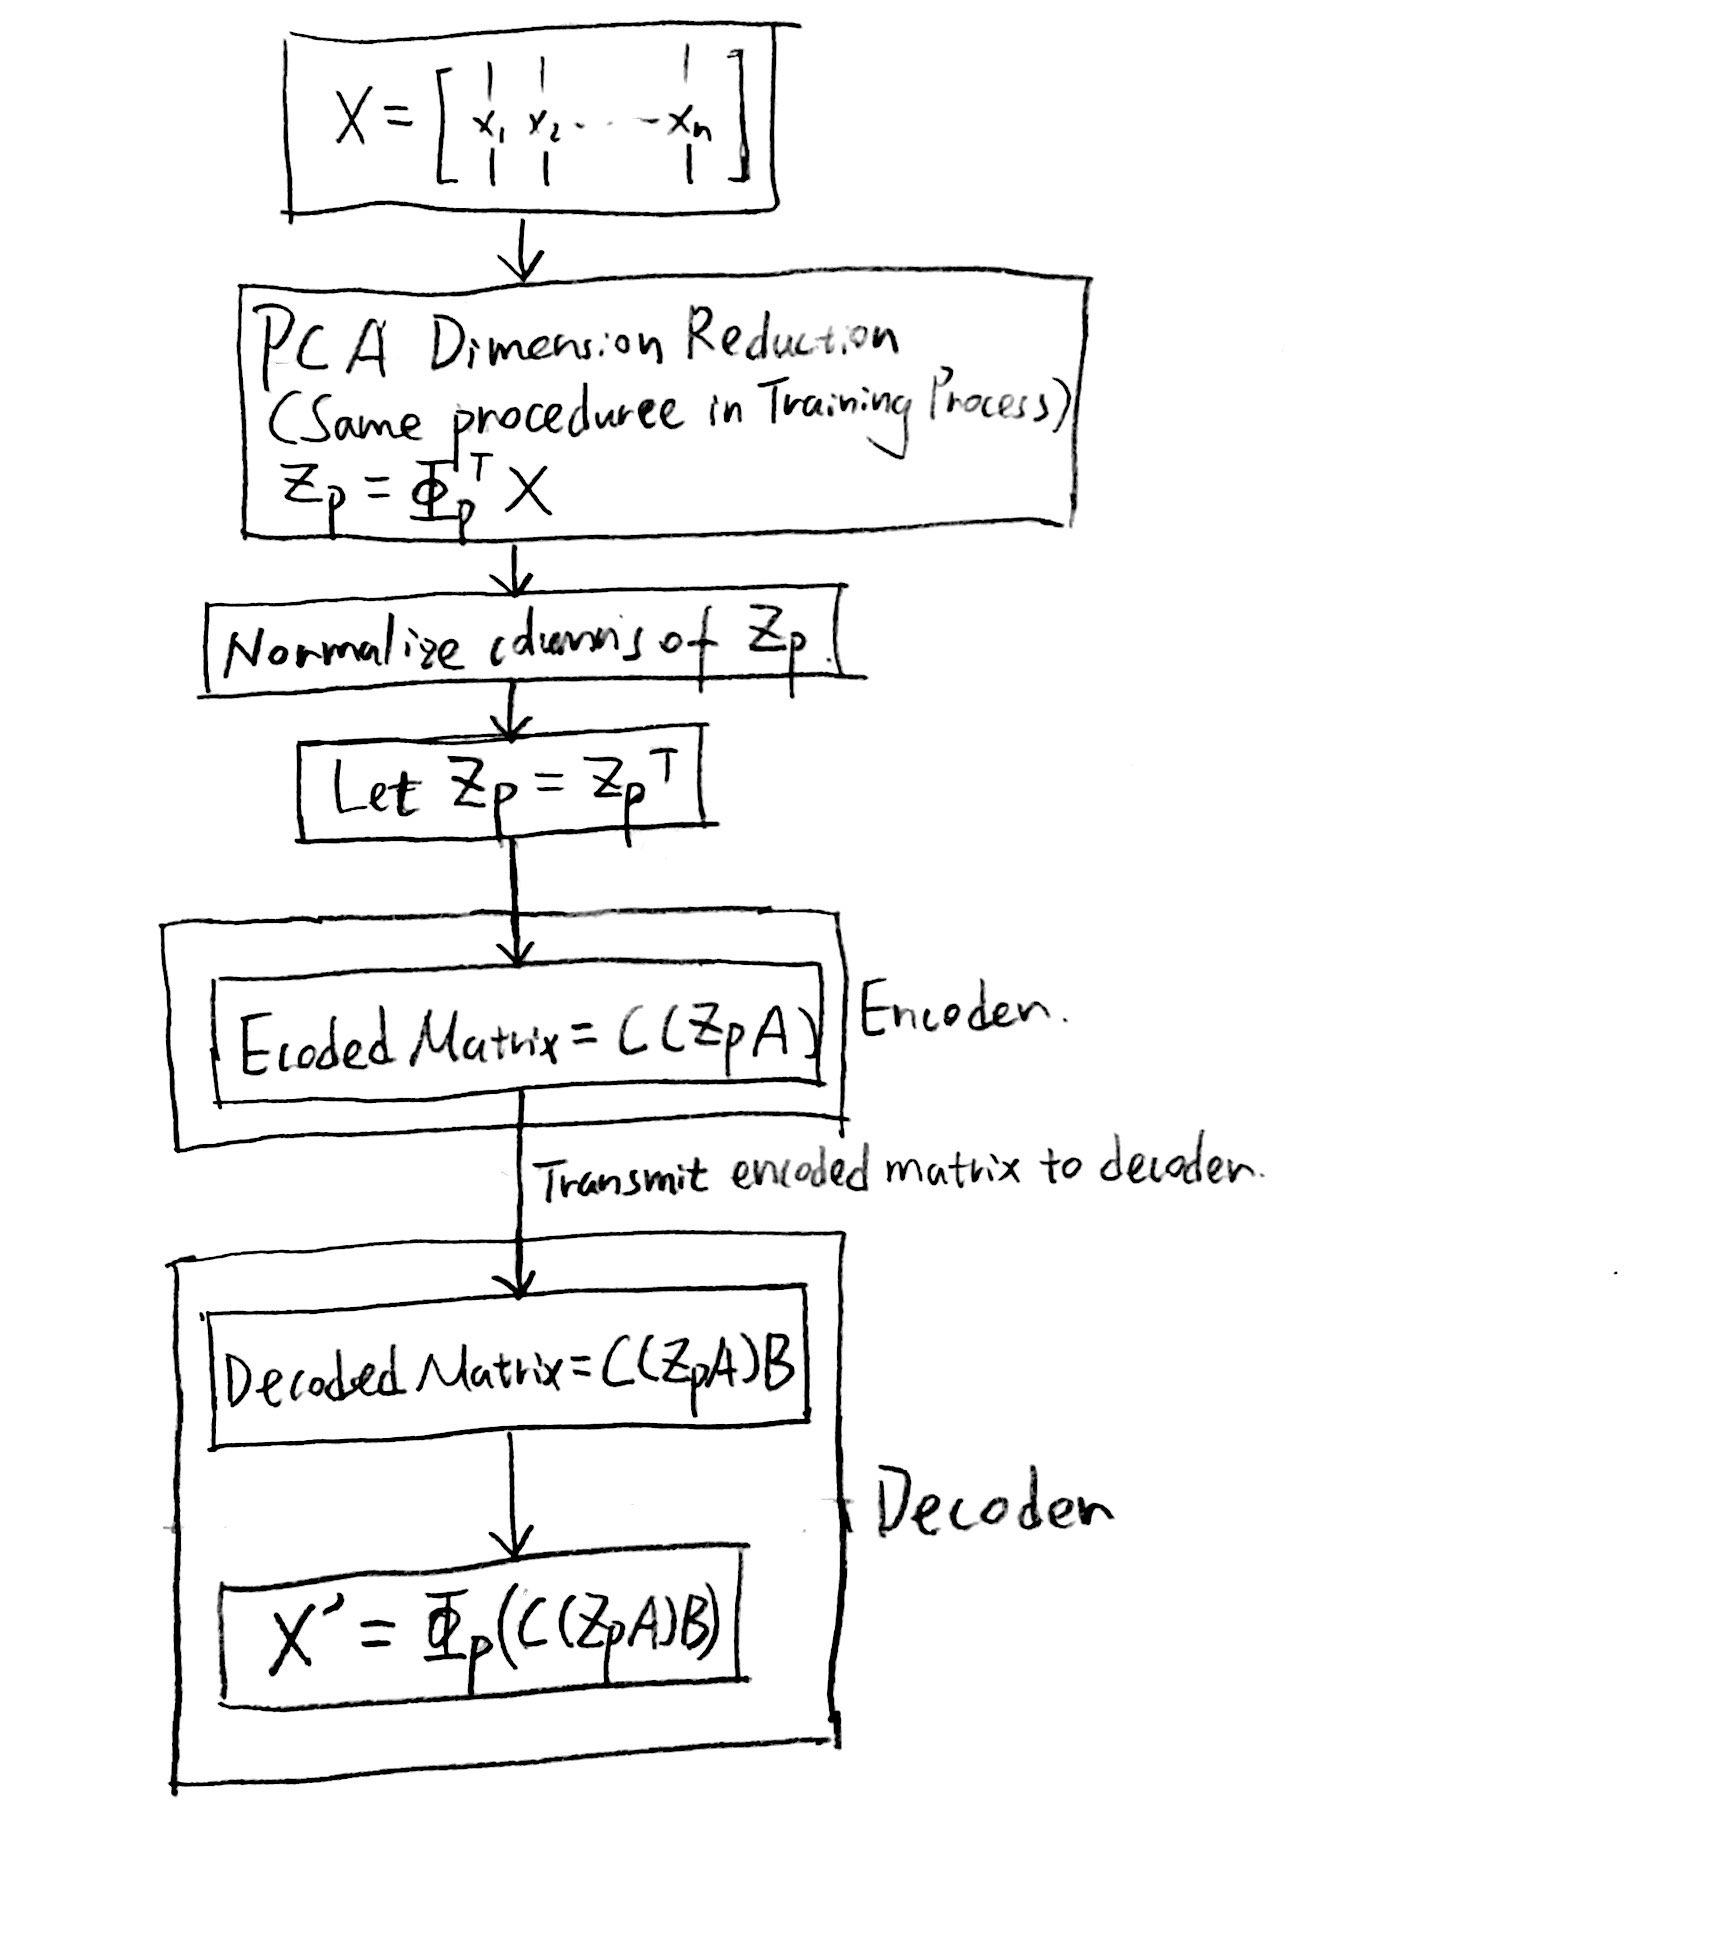 X = [ x₁ x₂ . . . - xₙ ]
PCA Dimension Reduction
(Same proceduree in Training Process)
Zp = Φpᵀ X
Normalize columns of Zp.
Let Zp = Zpᵀ
Ecoded Matrix = C(ZpA)
Encoder.
Transmit encoded matrix to decoder.
Decoded Matrix = C(ZpA)B
Decoder
X' = Φp(C(ZpA)B)